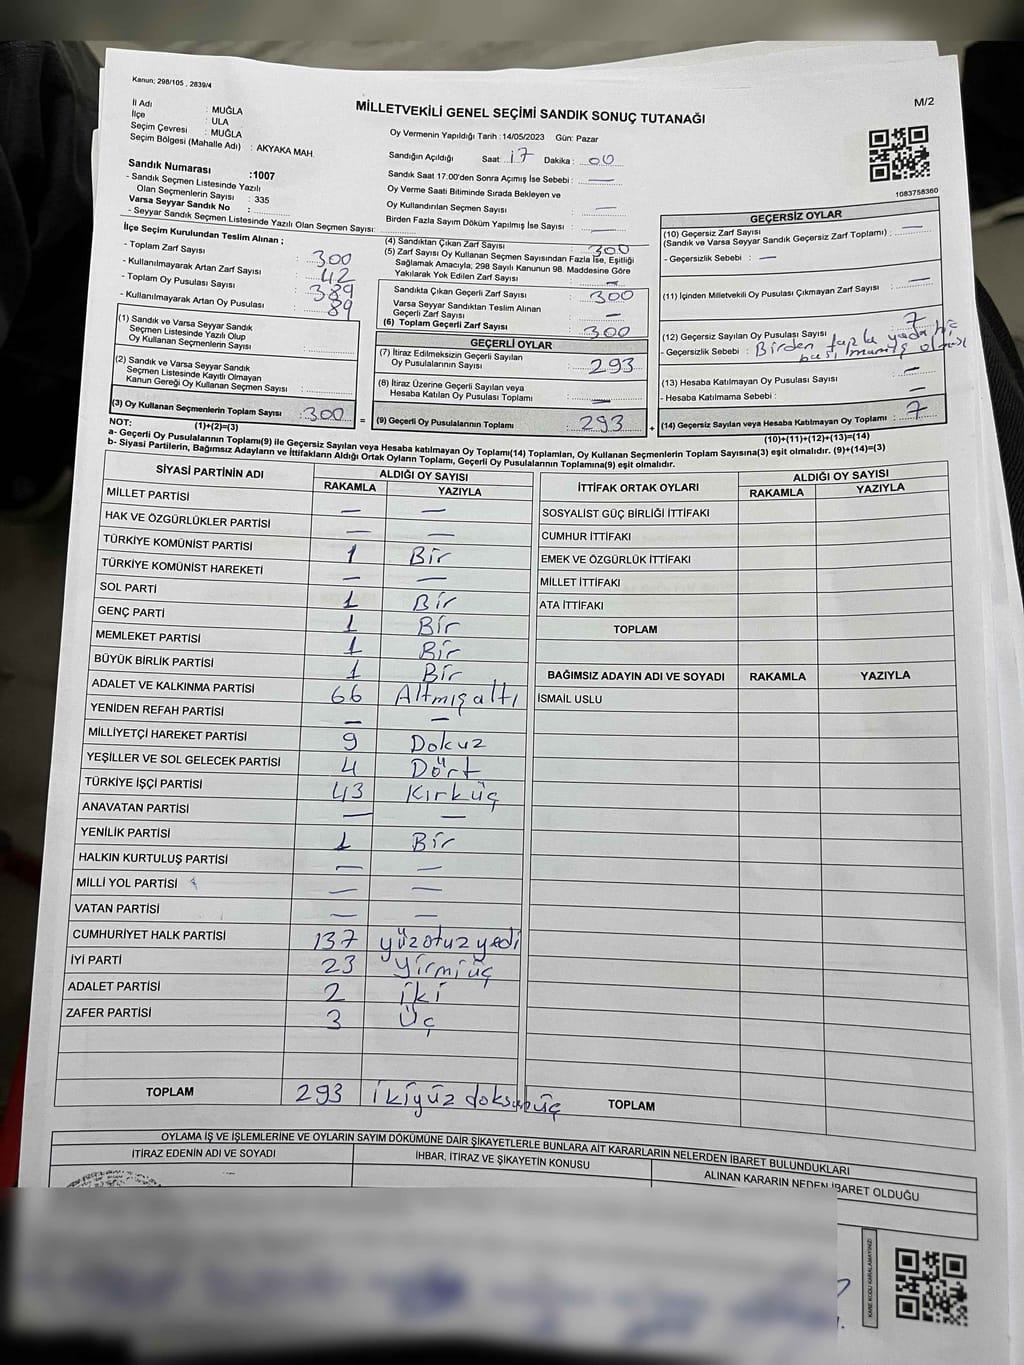 Kanun; 298/105 , 2839/4
M/2
MİLLETVEKİLİ GENEL SEÇİMİ SANDIK SONUÇ TUTANAĞI
İl Adı : MUĞLA
İlçe : ULA
Seçim Çevresi : MUĞLA
Seçim Bölgesi (Mahalle Adı) : AKYAKA MAH.
Oy Vermenin Yapıldığı Tarih : 14/05/2023 Gün: Pazar
Sandığın Açıldığı Saat: 17 Dakika : 00
Sandık Saat 17:00'den Sonra Açılmış İse Sebebi : —
Oy Verme Saati Bitiminde Sırada Bekleyen ve
Oy Kullandırılan Seçmen Sayısı —
Birden Fazla Sayım Döküm Yapılmış İse Sayısı : —
1083758360
Sandık Numarası :1007
- Sandık Seçmen Listesinde Yazılı
Olan Seçmenlerin Sayısı : 335
Varsa Seyyar Sandık No :
- Seyyar Sandık Seçmen Listesinde Yazılı Olan Seçmen Sayısı:
İlçe Seçim Kurulundan Teslim Alınan ;
- Toplam Zarf Sayısı : 300
- Kullanılmayarak Artan Zarf Sayısı : 42
- Toplam Oy Pusulası Sayısı : 389
- Kullanılmayarak Artan Oy Pusulası : 89
(1) Sandık ve Varsa Seyyar Sandık
Seçmen Listesinde Yazılı Olup
Oy Kullanan Seçmenlerin Sayısı :
(2) Sandık ve Varsa Seyyar Sandık
Seçmen Listesinde Kayıtlı Olmayan
Kanun Gereği Oy Kullanan Seçmen Sayısı :
(3) Oy Kullanan Seçmenlerin Toplam Sayısı : 300 =
(1)+(2)=(3)
(4) Sandıktan Çıkan Zarf Sayısı : 300
(5) Zarf Sayısı Oy Kullanan Seçmen Sayısından Fazla İse, Eşitliği
Sağlamak Amacıyla; 298 Sayılı Kanunun 98. Maddesine Göre
Yakılarak Yok Edilen Zarf Sayısı : —
Sandıkta Çıkan Geçerli Zarf Sayısı : 300
Varsa Seyyar Sandıktan Teslim Alınan
Geçerli Zarf Sayısı : —
(6) Toplam Geçerli Zarf Sayısı : 300
GEÇERLİ OYLAR
(7) İtiraz Edilmeksizin Geçerli Sayılan
Oy Pusulalarının Sayısı : 293
(8) İtiraz Üzerine Geçerli Sayılan veya
Hesaba Katılan Oy Pusulası Toplamı : —
(9) Geçerli Oy Pusulalarının Toplamı : 293 +
GEÇERSİZ OYLAR
(10) Geçersiz Zarf Sayısı : —
(Sandık ve Varsa Seyyar Sandık Geçersiz Zarf Toplamı)
- Geçersizlik Sebebi : —
(11) İçinden Milletvekili Oy Pusulası Çıkmayan Zarf Sayısı : —
(12) Geçersiz Sayılan Oy Pusulası Sayısı : 7
- Geçersizlik Sebebi : Birden fazla yada hiç
basılmamış olması
(13) Hesaba Katılmayan Oy Pusulası Sayısı : —
- Hesaba Katılmama Sebebi : —
(14) Geçersiz Sayılan veya Hesaba Katılmayan Oy Toplamı : 7
(10)+(11)+(12)+(13)=(14)
NOT:
a- Geçerli Oy Pusulalarının Toplamı(9) ile Geçersiz Sayılan veya Hesaba katılmayan Oy Toplamı(14) Toplamları, Oy Kullanan Seçmenlerin Toplam Sayısına(3) eşit olmalıdır. (9)+(14)=(3)
b- Siyasi Partilerin, Bağımsız Adayların ve İttifakların Aldığı Ortak Oyların Toplamı, Geçerli Oy Pusulalarının Toplamına(9) eşit olmalıdır.
SİYASİ PARTİNİN ADI ALDIĞI OY SAYISI
RAKAMLA YAZIYLA
MİLLET PARTİSİ — —
HAK VE ÖZGÜRLÜKLER PARTİSİ — —
TÜRKİYE KOMÜNİST PARTİSİ 1 Bir
TÜRKİYE KOMÜNİST HAREKETİ — —
SOL PARTİ 1 Bir
GENÇ PARTİ 1 Bir
MEMLEKET PARTİSİ 1 Bir
BÜYÜK BİRLİK PARTİSİ 1 Bir
ADALET VE KALKINMA PARTİSİ 66 Altmışaltı
YENİDEN REFAH PARTİSİ — —
MİLLİYETÇİ HAREKET PARTİSİ 9 Dokuz
YEŞİLLER VE SOL GELECEK PARTİSİ 4 Dört
TÜRKİYE İŞÇİ PARTİSİ 43 Kırküç
ANAVATAN PARTİSİ — —
YENİLİK PARTİSİ 1 Bir
HALKIN KURTULUŞ PARTİSİ — —
MİLLİ YOL PARTİSİ — —
VATAN PARTİSİ — —
CUMHURİYET HALK PARTİSİ 137 yüzotuzyedi
İYİ PARTİ 23 Yirmiüç
ADALET PARTİSİ 2 iki
ZAFER PARTİSİ 3 Üç
TOPLAM 293 ikiyüz doksanüç
İTTİFAK ORTAK OYLARI ALDIĞI OY SAYISI
RAKAMLA YAZIYLA
SOSYALİST GÜÇ BİRLİĞİ İTTİFAKI
CUMHUR İTTİFAKI
EMEK VE ÖZGÜRLÜK İTTİFAKI
MİLLET İTTİFAKI
ATA İTTİFAKI
TOPLAM
BAĞIMSIZ ADAYIN ADI VE SOYADI RAKAMLA YAZIYLA
İSMAİL USLU
TOPLAM
OYLAMA İŞ VE İŞLEMLERİNE VE OYLARIN SAYIM DÖKÜMÜNE DAİR ŞİKAYETLERLE BUNLARA AİT KARARLARIN NELERDEN İBARET BULUNDUKLARI
İTİRAZ EDENİN ADI VE SOYADI İHBAR, İTİRAZ VE ŞİKAYETİN KONUSU ALINAN KARARIN NEDEN İBARET OLDUĞU
KARE KODU KARALAMAYINIZ!